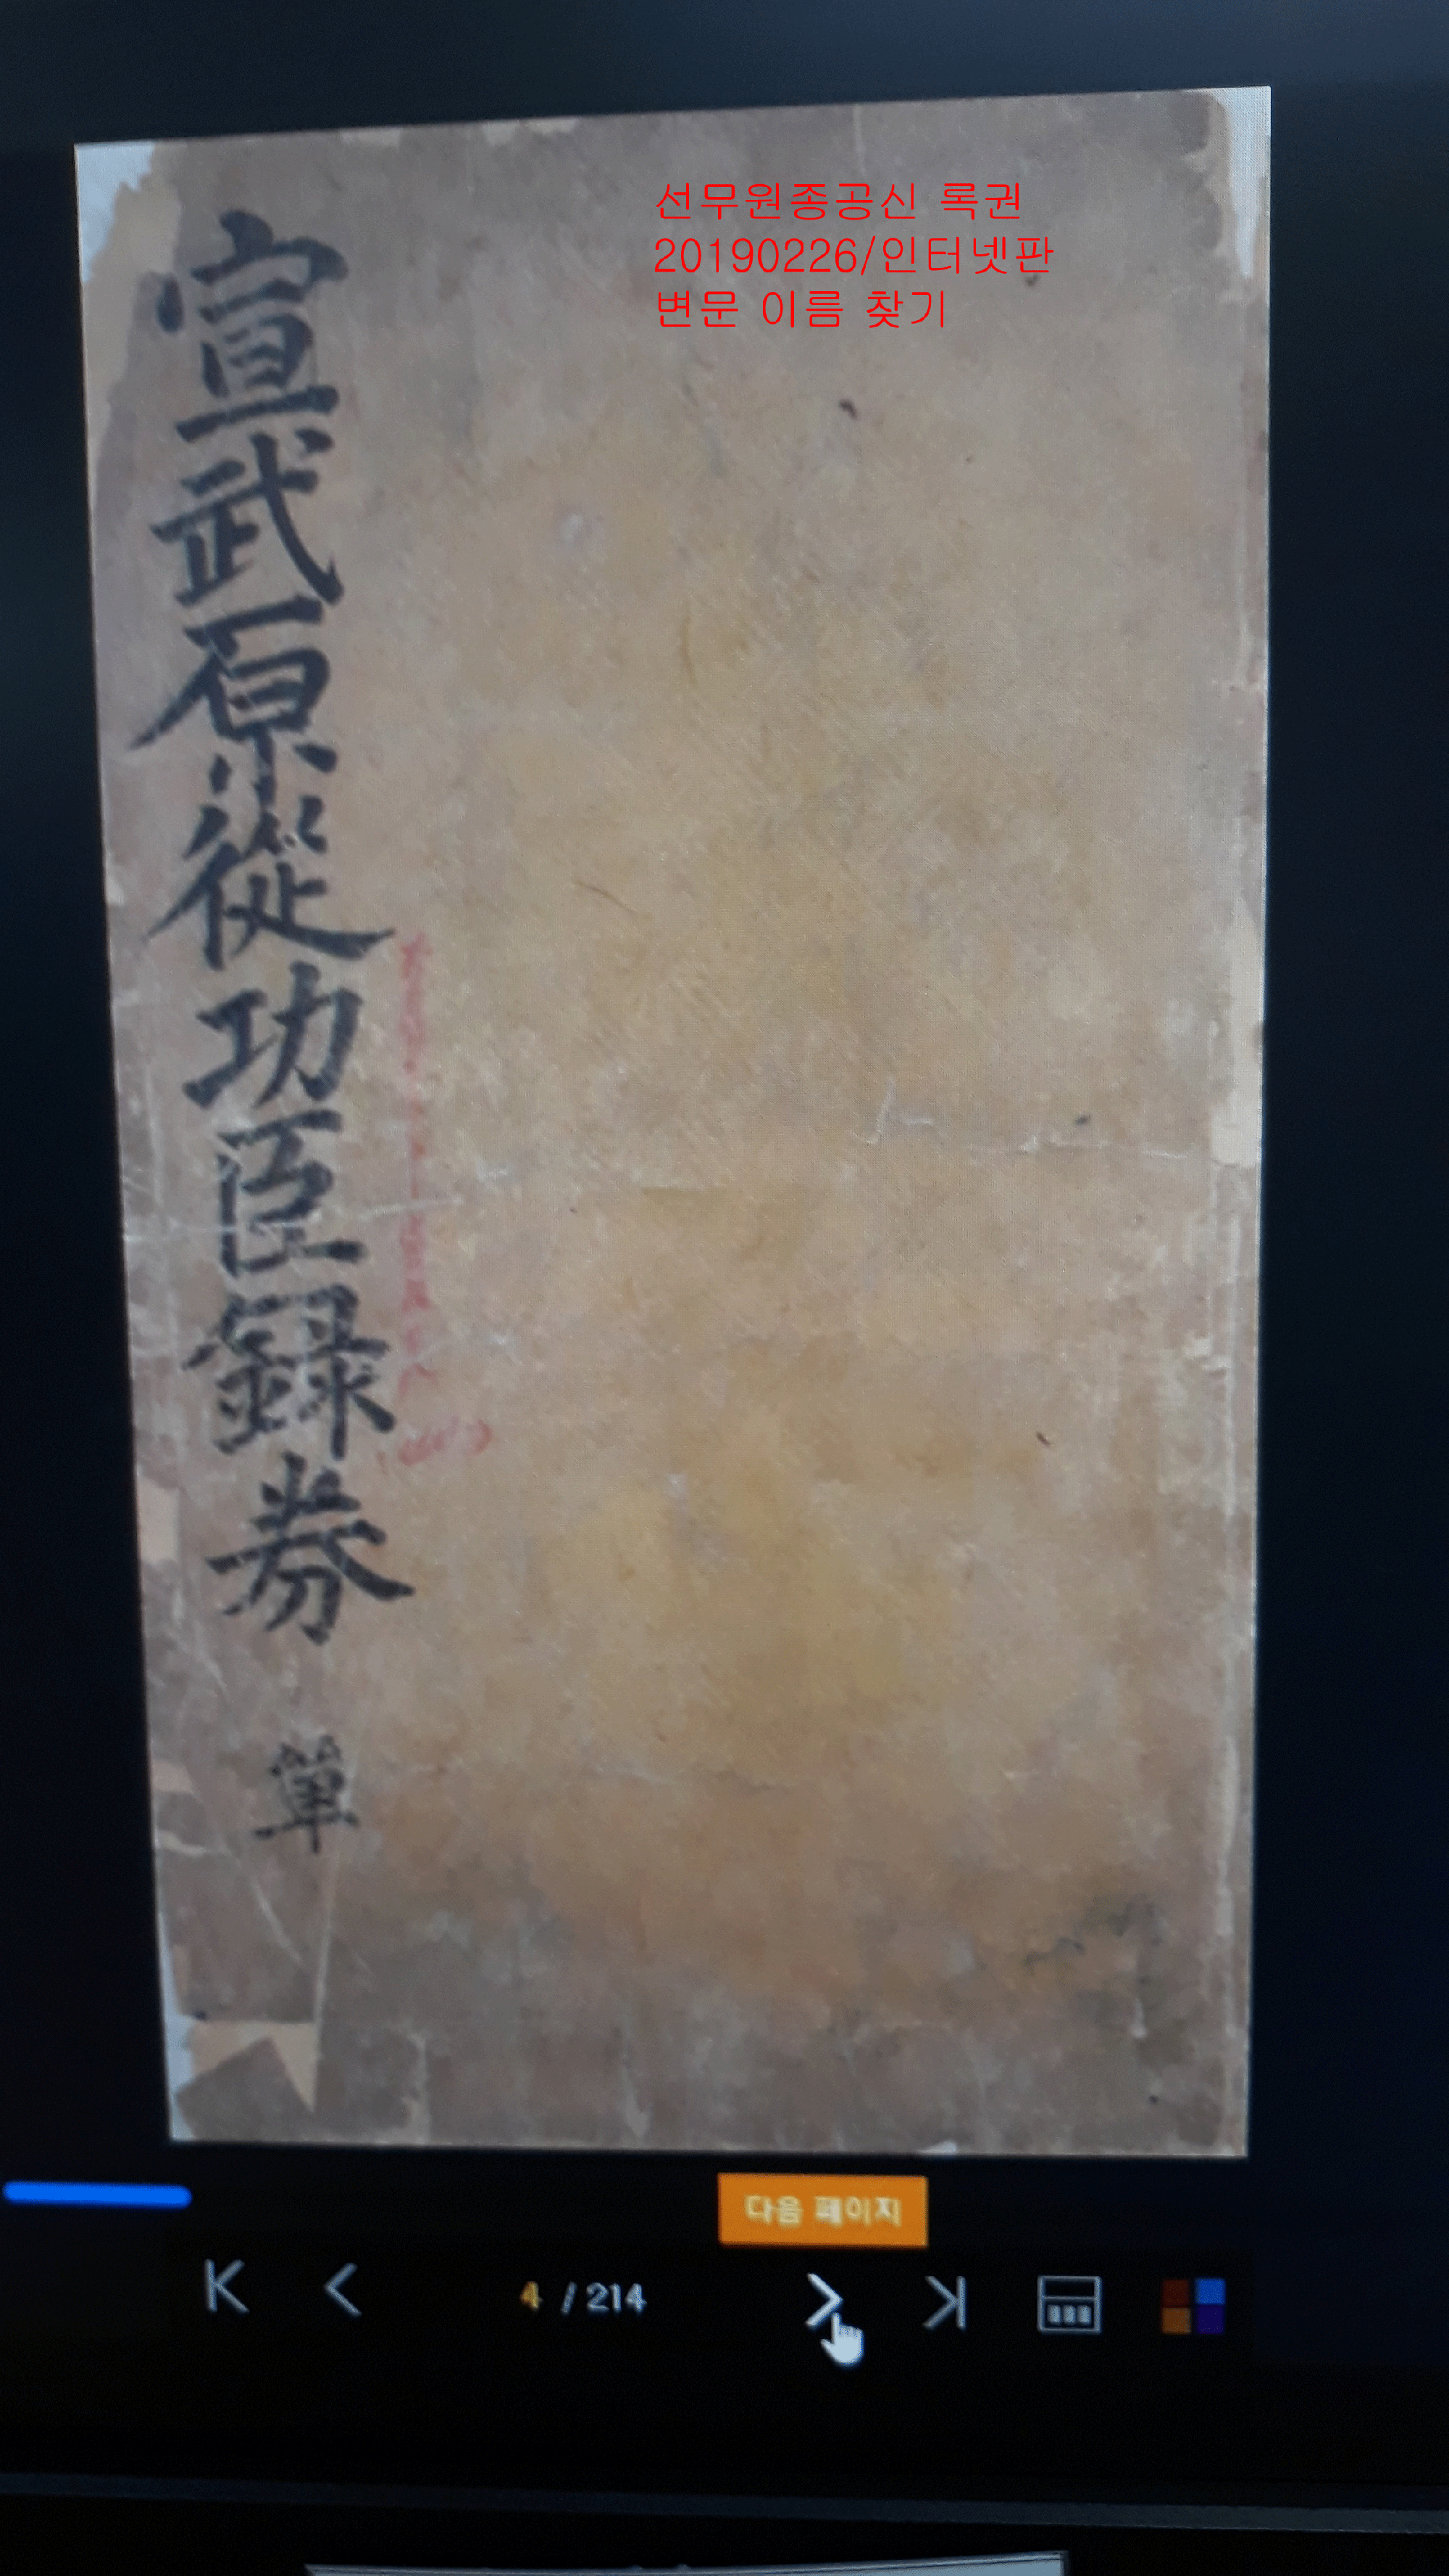 선무원종공신 록권
20190226/인터넷판
변문 이름 찾기
宣武原從功臣錄券
單
다음 페이지
4 / 214